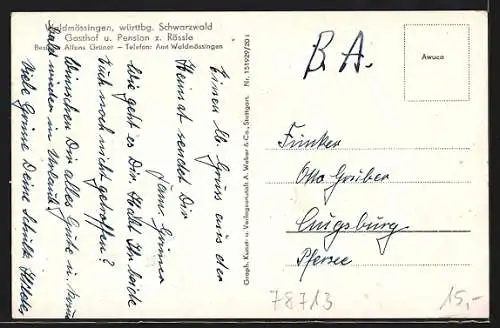 Waldmössingen, württbg. Schwarzwald
Gasthof u. Pension z. Rössle
Besitzer Alfons Grüner – Telefon: Amt Waldmössingen
Einen lb. Gruss aus der
Heimat sendet Dir
Fam. Grüner
Wie geht es Dir. Habt Ihr beide
Euch noch nicht getroffen?
Wünschen Dir alles Gute u. 
bald wieder in Urlaub.
Viele Grüsse Deine
Graph. Kunst- u. Verlagsanstalt A. Weber & Co., Stuttgart. Nr. 151929/20 i
B. A.
Awuco
Funker
Otto Gruber
Augsburg
Pfersee
78713
15,-